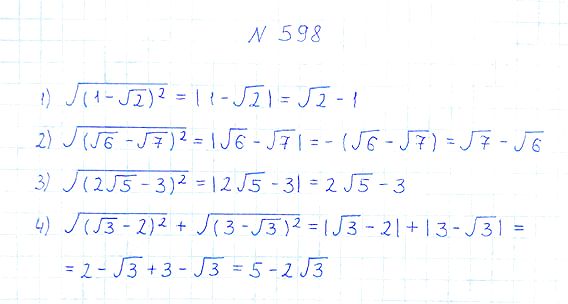 N 598
1) √(1-√2)² = |1-√2| = √2 - 1
2) √(√6 - √7)² = |√6 - √7| = - (√6 - √7) = √7 - √6
3) √(2√5 - 3)² = |2√5 - 3| = 2√5 - 3
4) √(√3 - 2)² + √(3 - √3)² = |√3 - 2| + |3 - √3| =
= 2 - √3 + 3 - √3 = 5 - 2√3